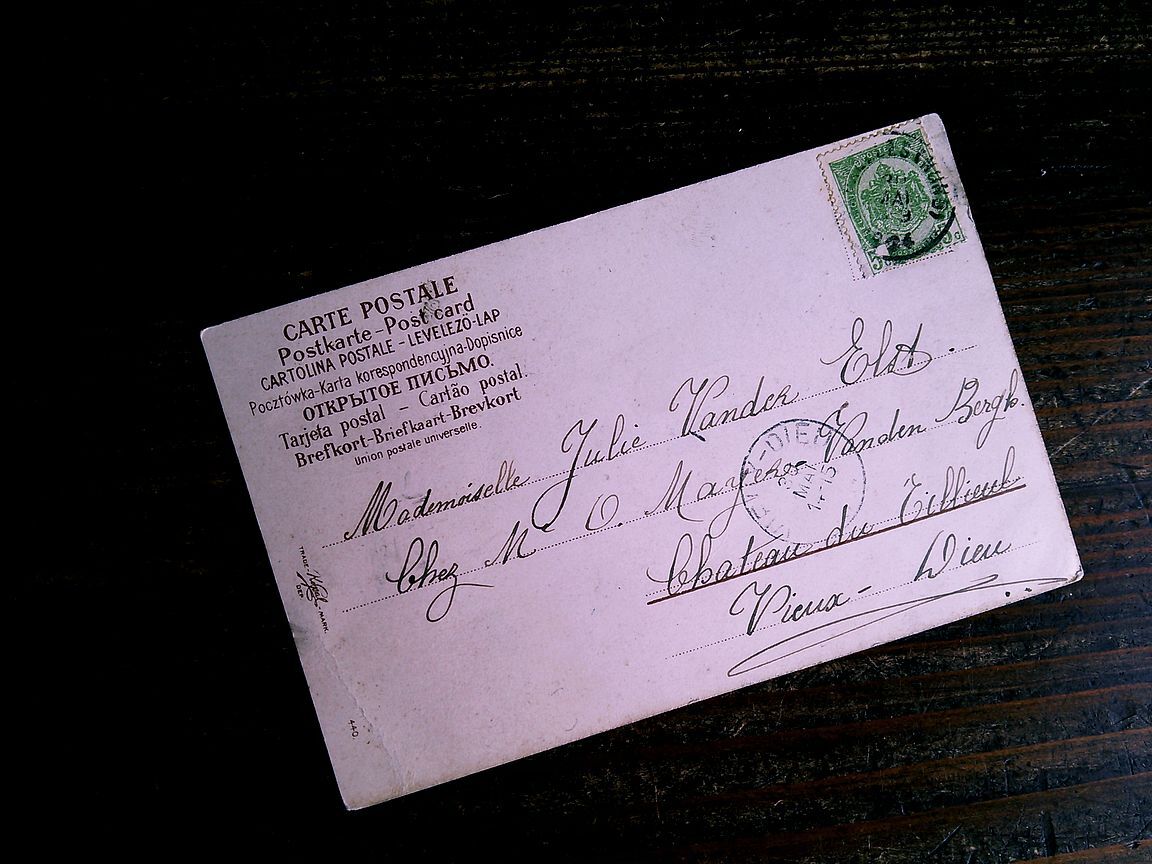 CARTE POSTALE
Postkarte-Post card
CARTOLINA POSTALE - LEVELEZÖ-LAP
Pocztówka-Karta korespondencyjna-Dopisnice
ОТКРЫТОЕ ПИСЬМО.
Tarjeta postal - Cartão postal.
Brefkort-Briefkaart-Brevkort
Union postale universelle.
Mademoiselle Julie Vander Elst.
Chez Mr O. Mayer Vanden Bergh.
Chateau du Tillieul
Vieux-Dieu
TRADE MARK.
DEP.
440.